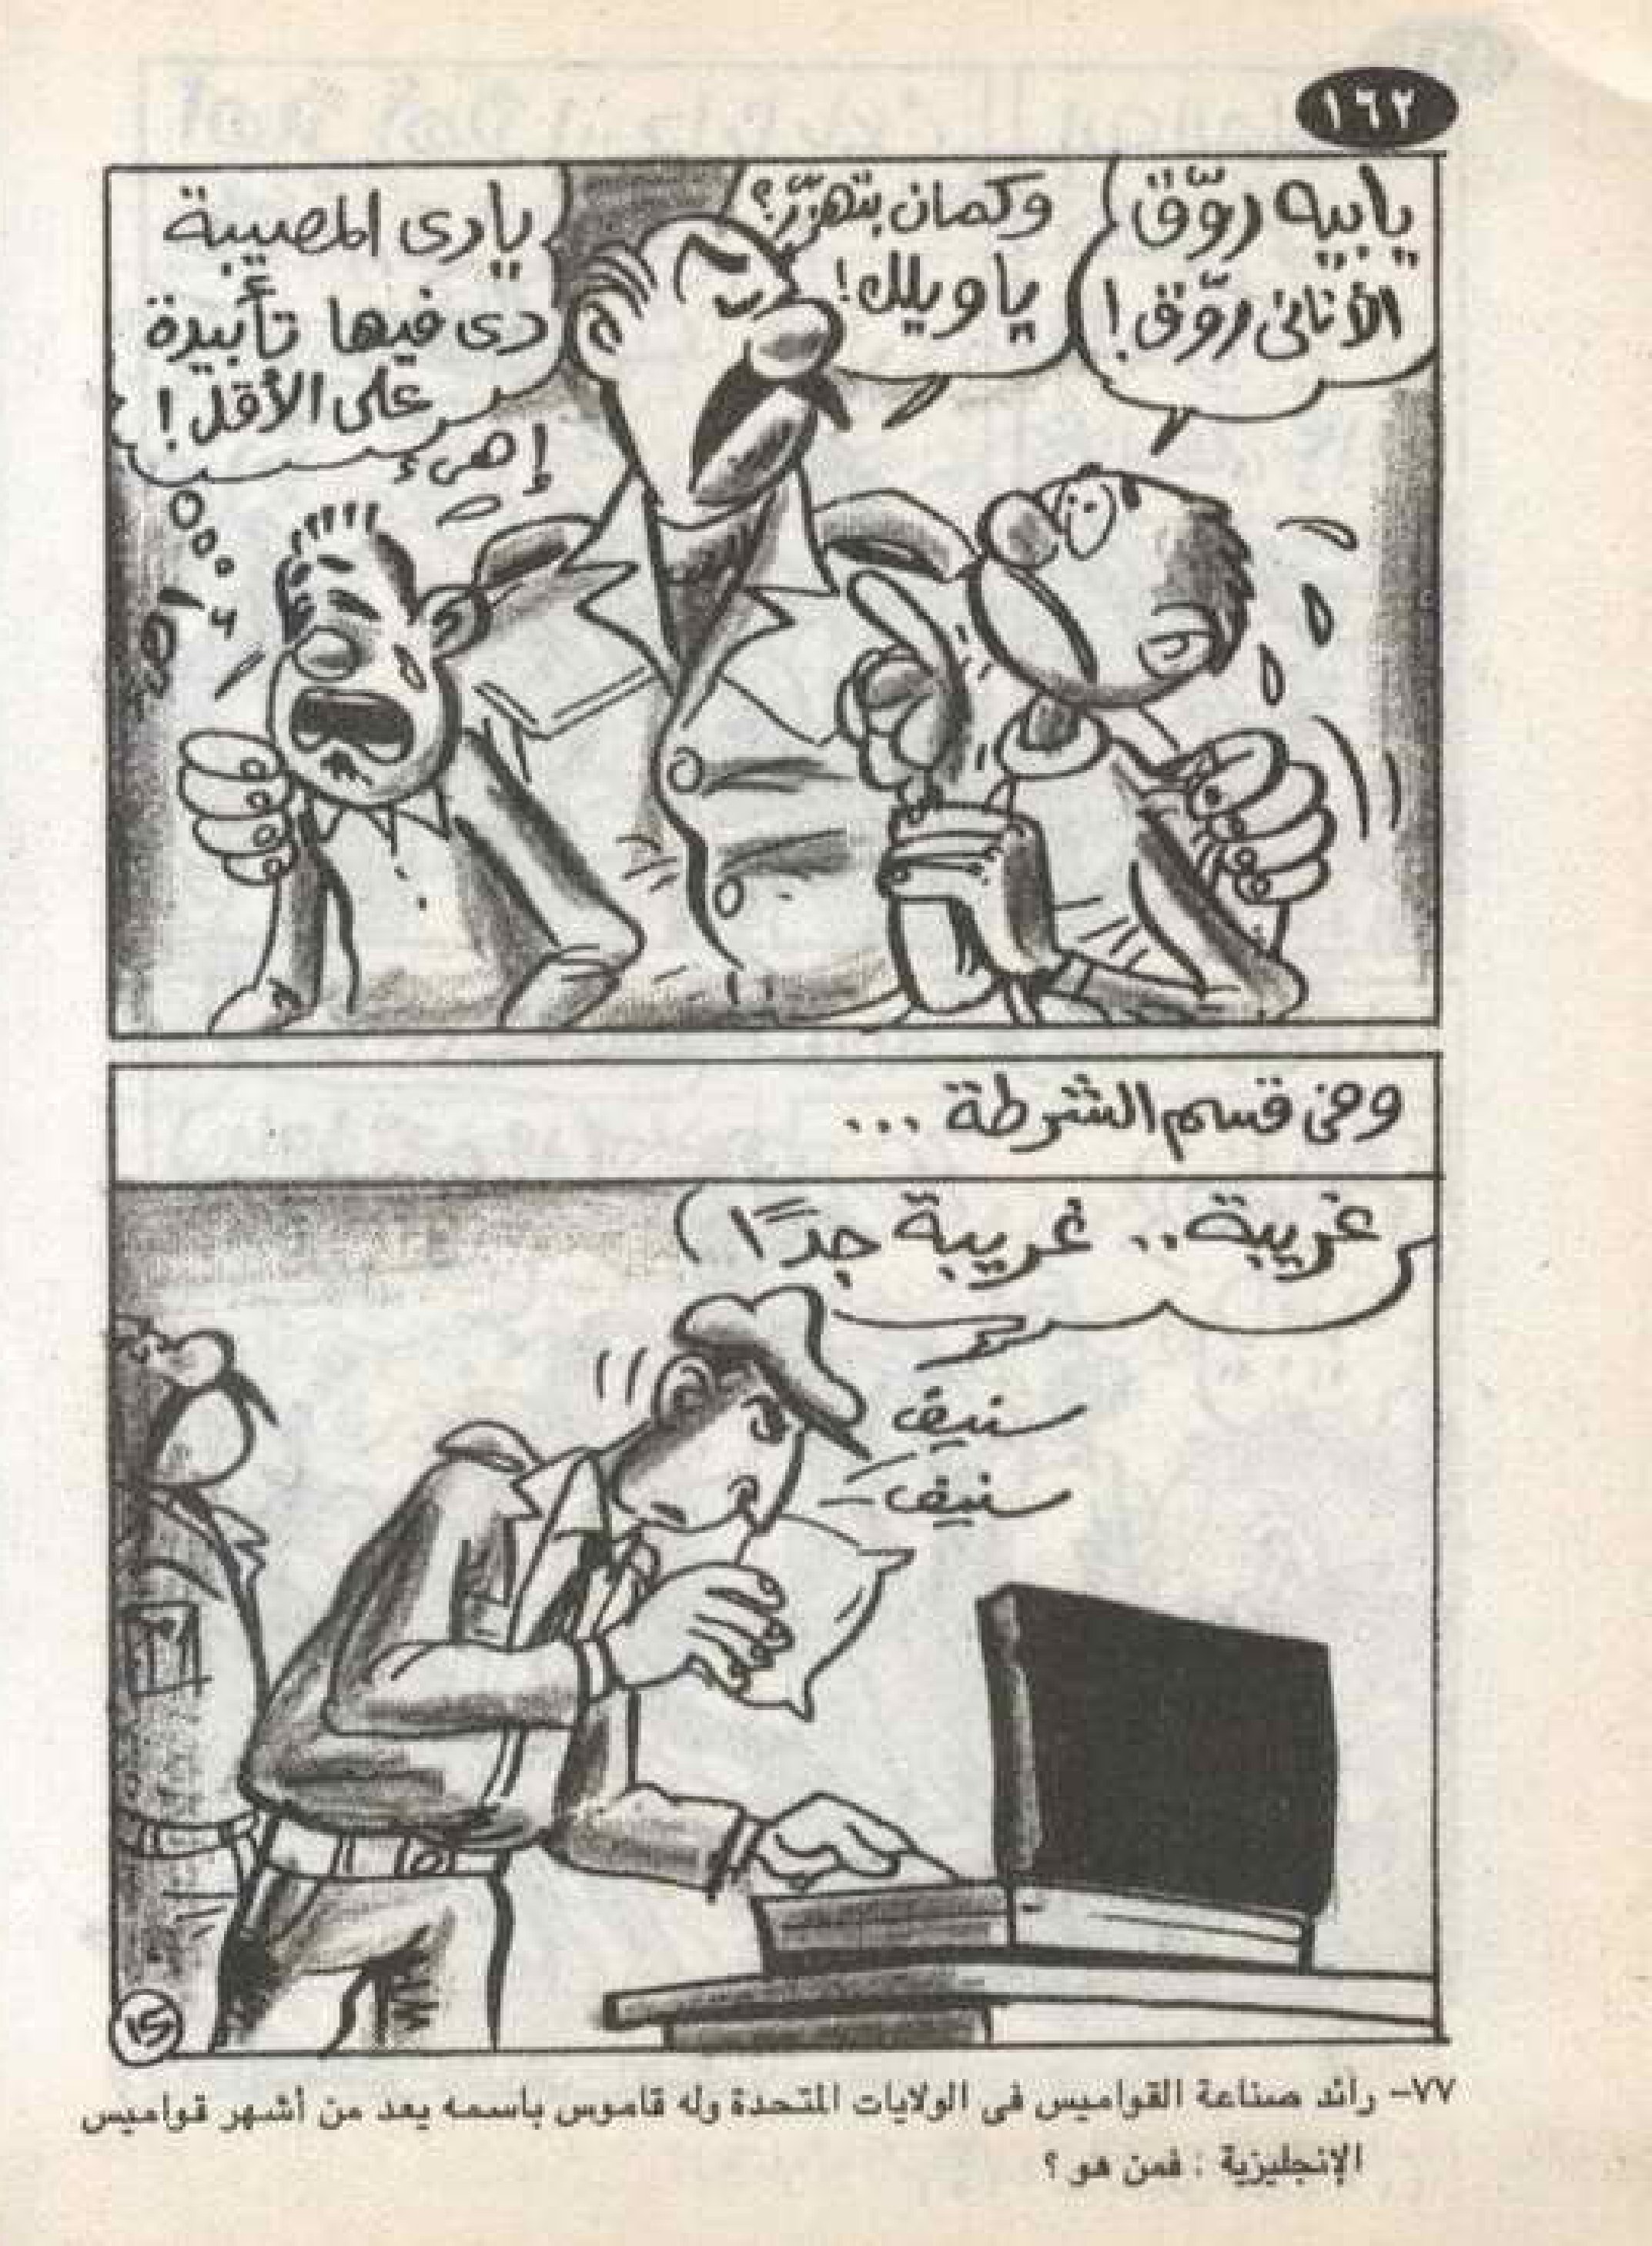 ١٦٢
يا بيه روّق
الأنانى روّق!
وكمان بتهزّر؟
يا ويلك!
يادى المصيبة
دى فيها تأبيدة
على الأقل!
إهىء
وفى قسم الشرطة ...
غريبة.. غريبة جدًا
سنيف
سنيف
١٥
٧٧- رائد صناعة القواميس فى الولايات المتحدة وله قاموس باسمه يعد من أشهر قواميس
الإنجليزية : فمن هو ؟